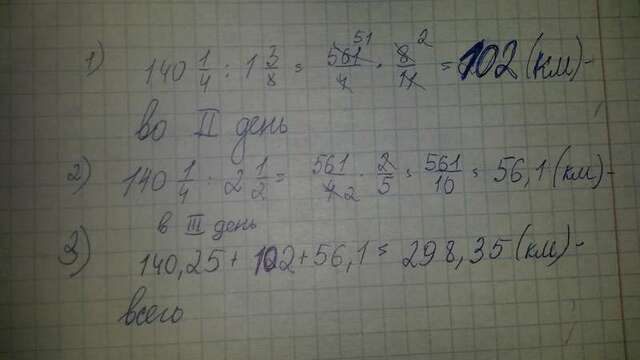 1) 140 1/4 : 1 3/8 = 561/4 · 8/11 = 102 (км) -
51 2
во II день
2) 140 1/4 : 2 1/2 = 561/4 · 2/5 = 561/10 = 56,1 (км) -
2
в III день
3) 140,25 + 102 + 56,1 = 298,35 (км) -
всего